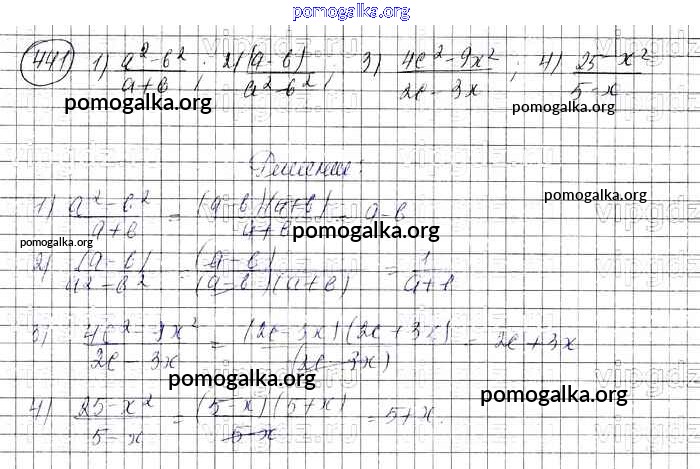 pomogalka.org
441 1) a²-b²/a+b ; 2) (a-b)/a²-b² ; 3) 4c²-9x²/2c-3x ; 4) 25-x²/5-x
pomogalka.org
pomogalka.org
Решение:
pomogalka.org
1) a²-b²/a+b = (a-b)(a+b)/a+b = a-b
pomogalka.org
pomogalka.org
2) (a-b)/a²-b² = (a-b)/(a-b)(a+b) = 1/a+b
3) 4c²-9x²/2c-3x = (2c-3x)(2c+3x)/(2c-3x) = 2c+3x
pomogalka.org
pomogalka.org
4) 25-x²/5-x = (5-x)(5+x)/5-x = 5+x.